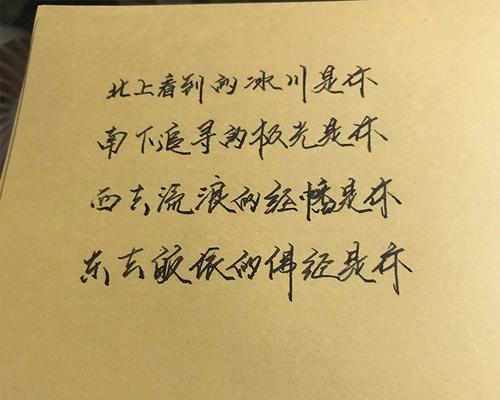 北上看到的冰川是你
南下追寻的极光是你
西去流浪的经幡是你
东去皈依的佛经是你